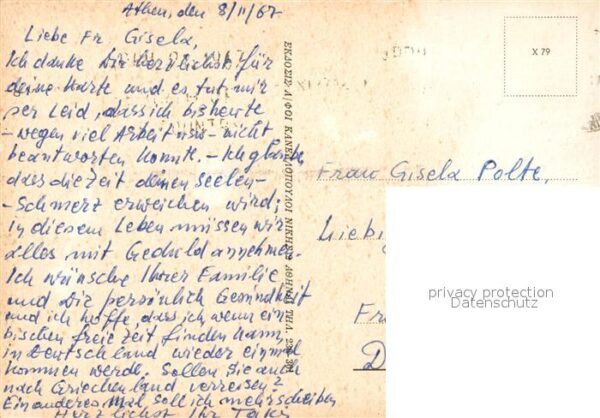 Athen, den 8/11/67
Liebe Fr. Gisela,
Ich danke Dir herzlichst für
deine Karte und es tut mir
ser Leid, dass ich bis heute
- wegen viel Arbeit usw - nicht
beantworten konnte. - Ich glaube
dass die Zeit deinen Seelen-
- Schmerz erweichen wird;
in diesem Leben müssen wir
alles mit Geduld annehmen.
Ich wünsche Ihrer Familie
und Die persönlich Gesundheit
und ich hoffe, dass ich, wenn ein
bischen freie Zeit finden kann,
in Deutschland wieder einmal
kommen werde. Sollen Sie auch
nach Griechenland verreisen?
Ein anderes Mal soll ich mehr schreiben
Herzlichst Ihr Takis
ΕΚΔΟΣΙΣ: Α/ΦΟΙ ΚΑΝΕΛΛΟΠΟΥΛΟΙ ΝΙΚΗΣ ΑΘΗΝΑΙ ΤΗΛ.
X 79
Frau Gisela Polte,
Liebi
Fr
D
privacy protection
Datenschutz